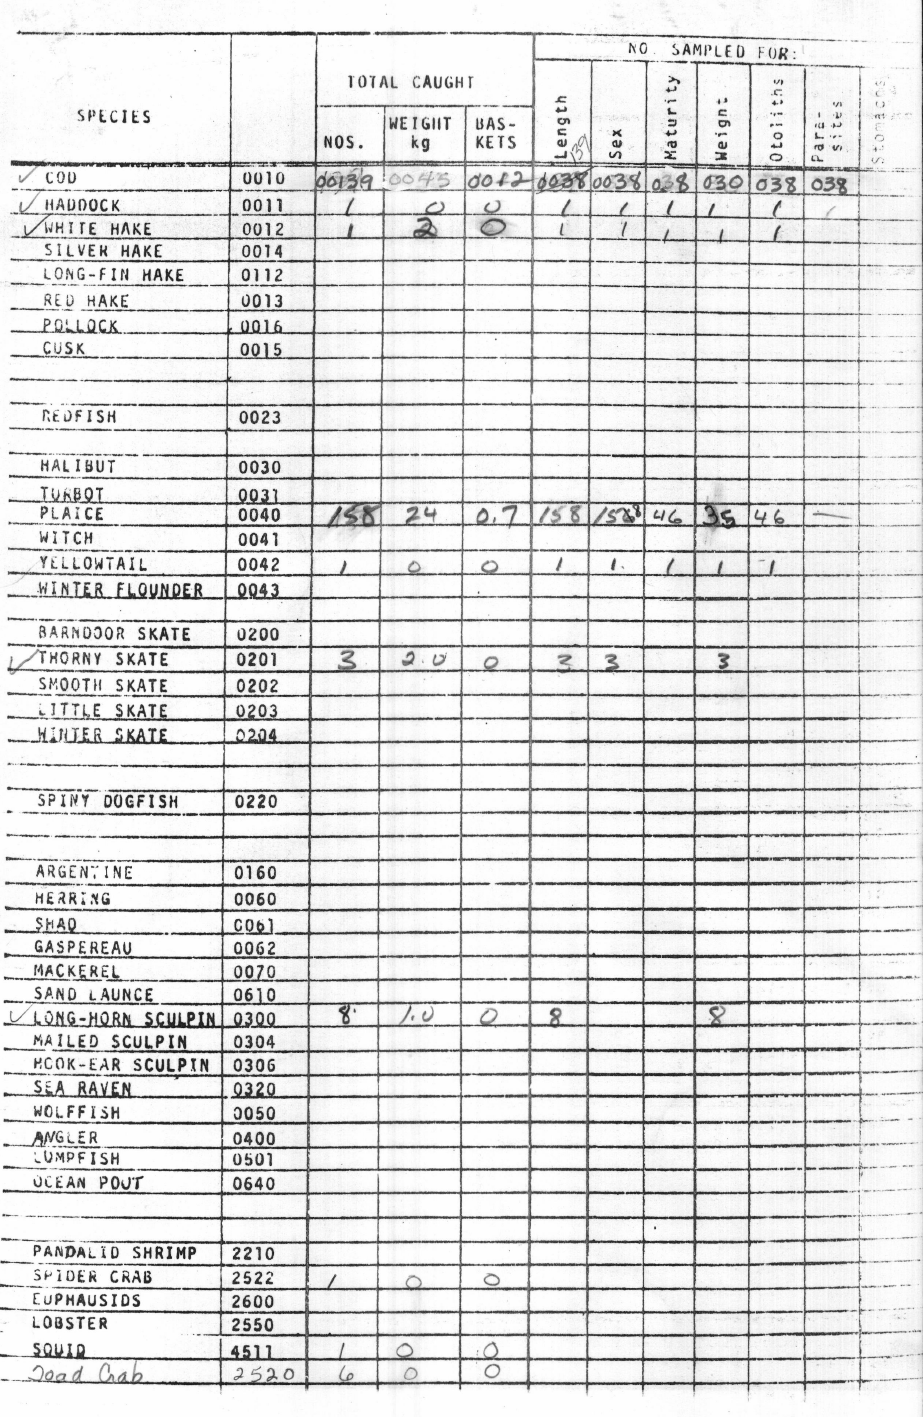 NO. SAMPLED FOR:
TOTAL CAUGHT
SPECIES NOS. WEIGHT kg BAS-KETS Length 139 Sex Maturity Weight Otoliths Para-sites Stomachs
COD 0010 00139 0045 0012 0038 0038 038 030 038 038
HADDOCK 0011 1 0 0 1 1 1 1 1 1
WHITE HAKE 0012 1 2 0 1 1 1 1 1
SILVER HAKE 0014
LONG-FIN HAKE 0112
RED HAKE 0013
POLLOCK 0016
CUSK 0015
REDFISH 0023
HALIBUT 0030
TURBOT 0031
PLAICE 0040 158 24 0.7 158 158 46 35 46 —
WITCH 0041
YELLOWTAIL 0042 1 0 0 1 1 1 1 1
WINTER FLOUNDER 0043
BARNDOOR SKATE 0200
THORNY SKATE 0201 3 2.0 0 3 3 3
SMOOTH SKATE 0202
LITTLE SKATE 0203
WINTER SKATE 0204
SPINY DOGFISH 0220
ARGENTINE 0160
HERRING 0060
SHAD 0061
GASPEREAU 0062
MACKEREL 0070
SAND LAUNCE 0610
LONG-HORN SCULPIN 0300 8 1.0 0 8 8
MAILED SCULPIN 0304
HOOK-EAR SCULPIN 0306
SEA RAVEN 0320
WOLFFISH 0050
ANGLER 0400
LUMPFISH 0501
OCEAN POUT 0640
PANDALID SHRIMP 2210
SPIDER CRAB 2522 1 0 0
EUPHAUSIDS 2600
LOBSTER 2550
SQUID 4511 1 0 0
Toad Crab 2520 6 0 0